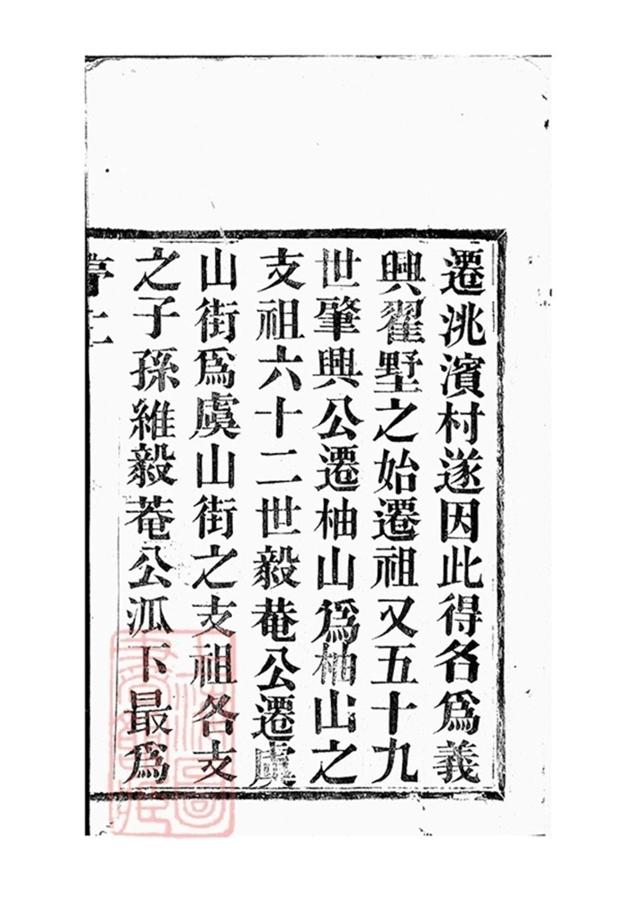 遷洮濱村遂因此得名爲義
興翟墅之始遷祖又五十九
世肇興公遷柚山爲柚山之
支祖六十二世毅菴公遷虞
山街爲虞山街之支祖各支
之子孫維毅菴公派下最爲